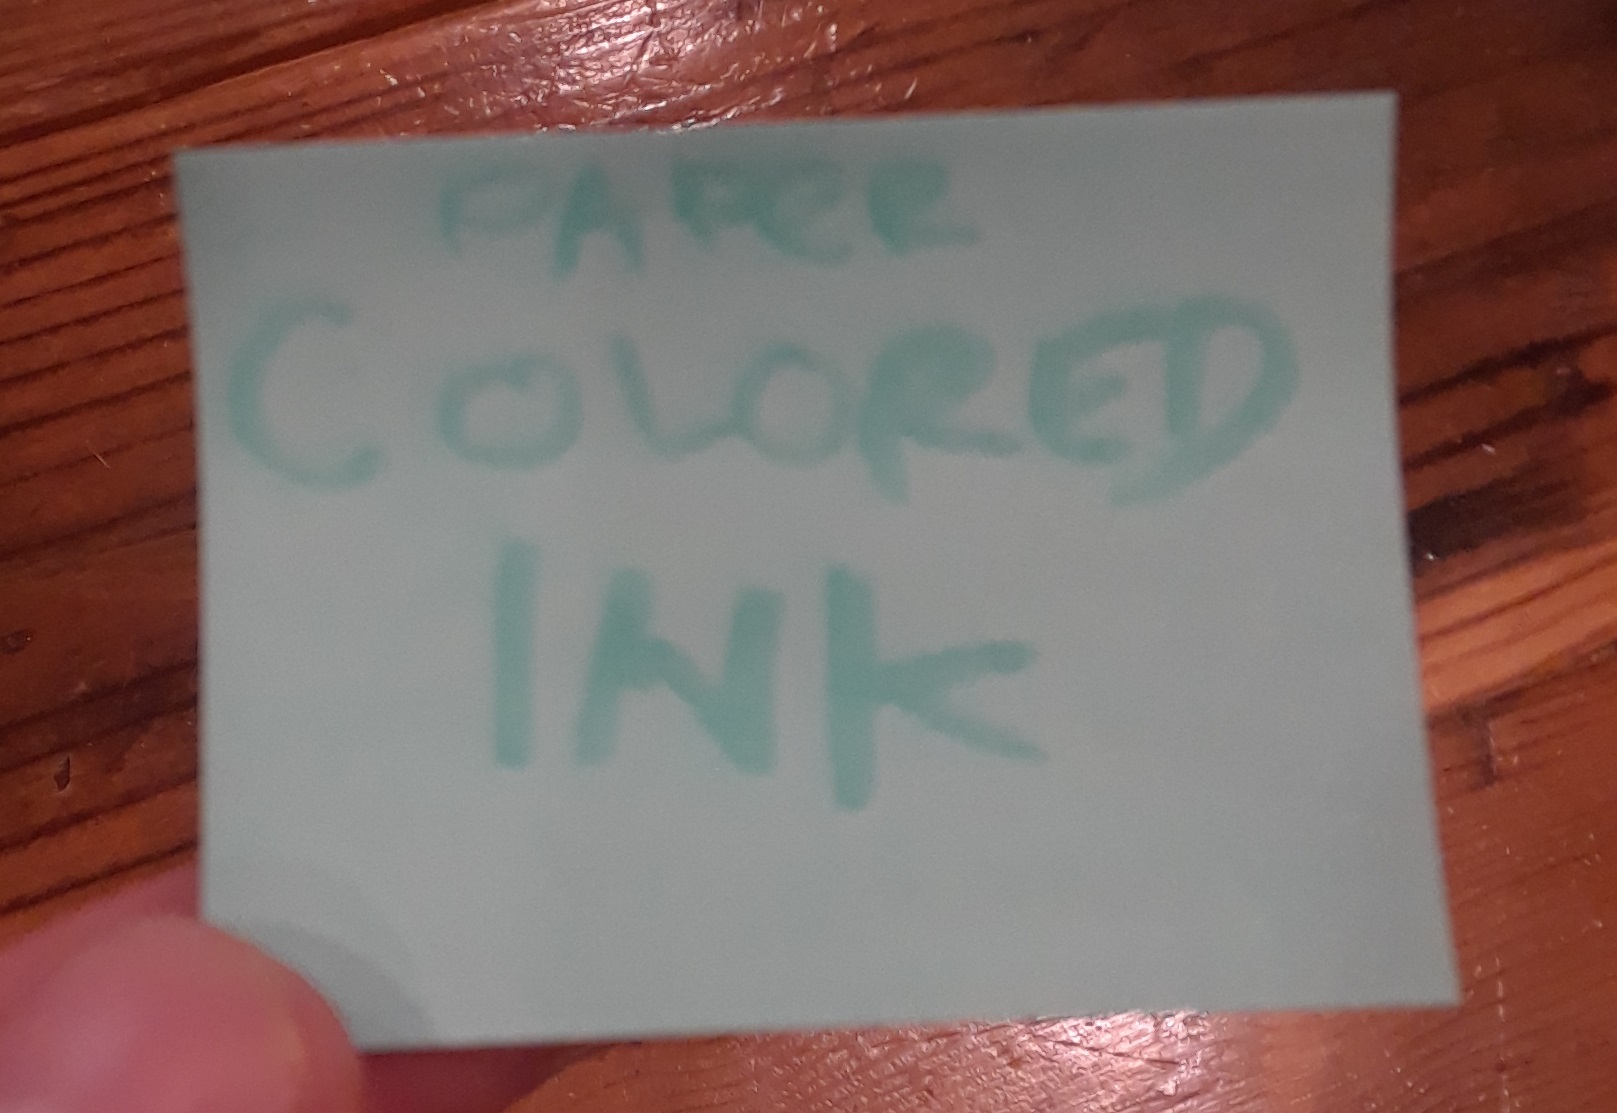 PAPER
COLORED
INK